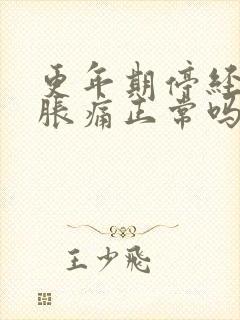 更年期停经
胀痛正常吗
王少飞